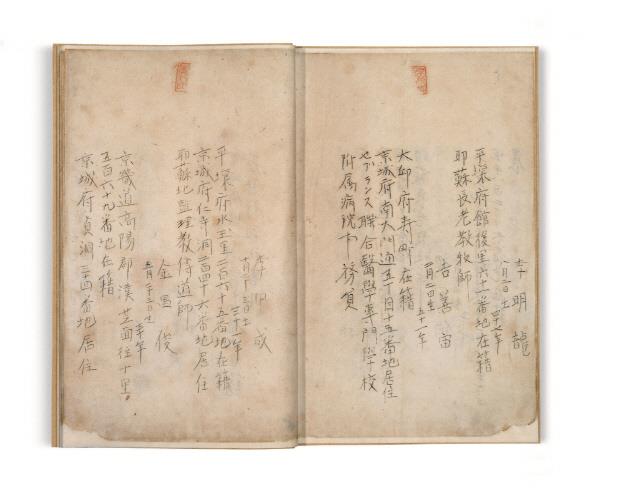 李明龍
八月二日生 四十七年
平壤府館後里六十一番地在籍
耶蘇長老敎牧師
吉善宙
五十一年
大邱府寿町在籍
京城府南大門通五丁目十五番地居住
セブランス聯合醫學專門學校
附属病院事務員
李甲成
三十二年
平壤府水玉里二百六十五番地在籍
京城府仁寺洞二百四十六番地居住
耶蘇北監理敎傳道師
金昌俊
五月三日生
京畿道高陽郡漢芝面往十里
五百六十九番地在籍
京城府貞洞三四番地居住